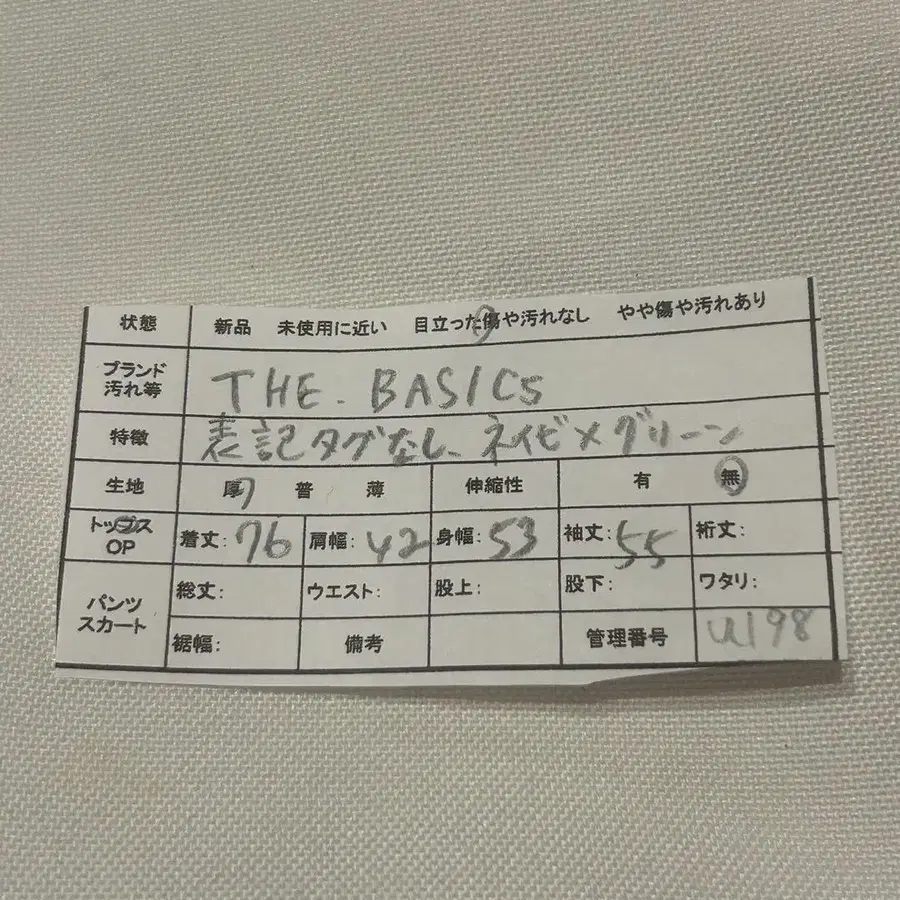 状態 新品 未使用に近い 目立った傷や汚れなし やや傷や汚れあり
ブランド 汚れ等 THE. BASICS
特徴 表記タグなし、ネイビ×グリーン
生地 厚 普 薄 伸縮性 有 無
トップス OP 着丈:76 肩幅:42 身幅:53 袖丈:55 裄丈:
パンツ スカート 総丈: ウエスト: 股上: 股下: ワタリ:
裾幅: 備考 管理番号 U198